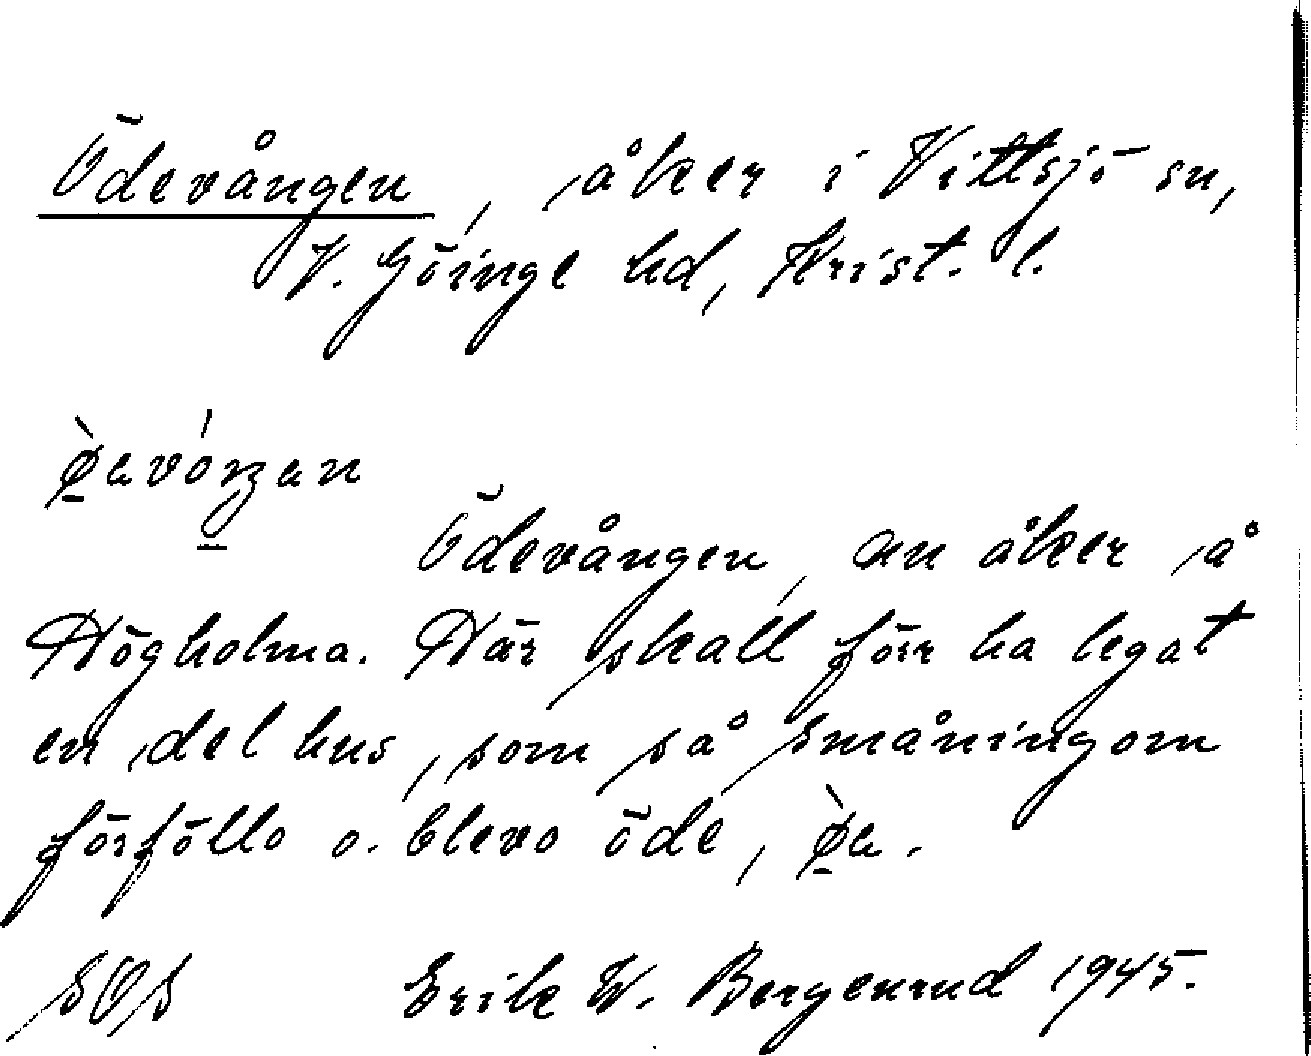 Ödevången, åker i Vittsjö sn,
V. Göinge hd, Krist. l.
Ödevången, en åker å
Högholma. Där skall förr ha legat
en del hus, som så småningom
förföllo o. blevo öde,
SOS Erik W. Bergenrud 1945.